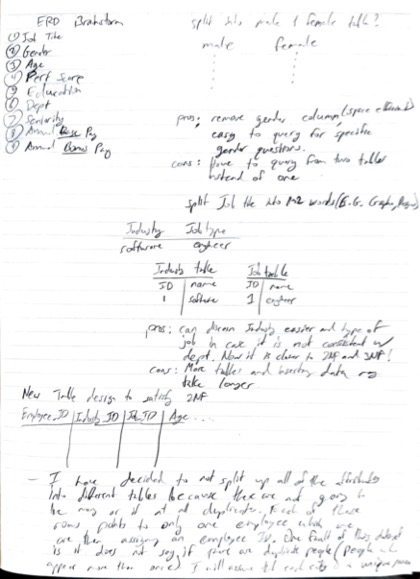 ERD Brainstorm
① Job Title
② Gender
③ Age
④ Perf Score
⑤ Education
⑥ Dept
⑦ Seniority
⑧ Annual Base Pay
⑨ Annual Bonus Pay
split into male & female table?
male female
pros: remove gender column (space
easy to query for specific
gender questions.
cons: have to query from two tables
instead of one
split Job title into words (E.G.
Industry Job type
software engineer
Industry table Job table
ID name ID name
1 software 1 engineer
pros: can discern Industry easier and type of
job in case it is not consistent w/
dept. Now it is closer to 2NF and 3NF!
cons: More tables and inserting data may
take longer.
New Table design to satisfy 2NF
Employee_ID Industry_ID Job_ID Age ...
- I have decided to not split up all of the attributes
into different tables because there are not going to
be many or if at all duplicates. Each of these
rows points to only one employee which we
are then assigning an employee ID. One
is it does not say if there are duplicate people (people
appear more than once). I will assume that each is a unique person